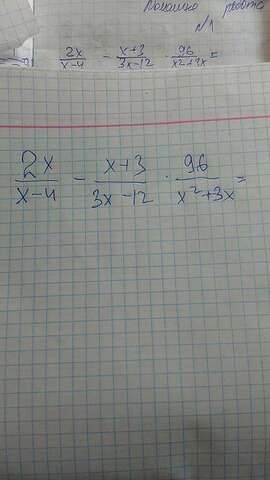 Домашня робота
№1
2x/x-4 - x+3/3x-12 · 96/x²+3x =
2x/x-4 - x+3/3x-12 · 96/x²+3x =